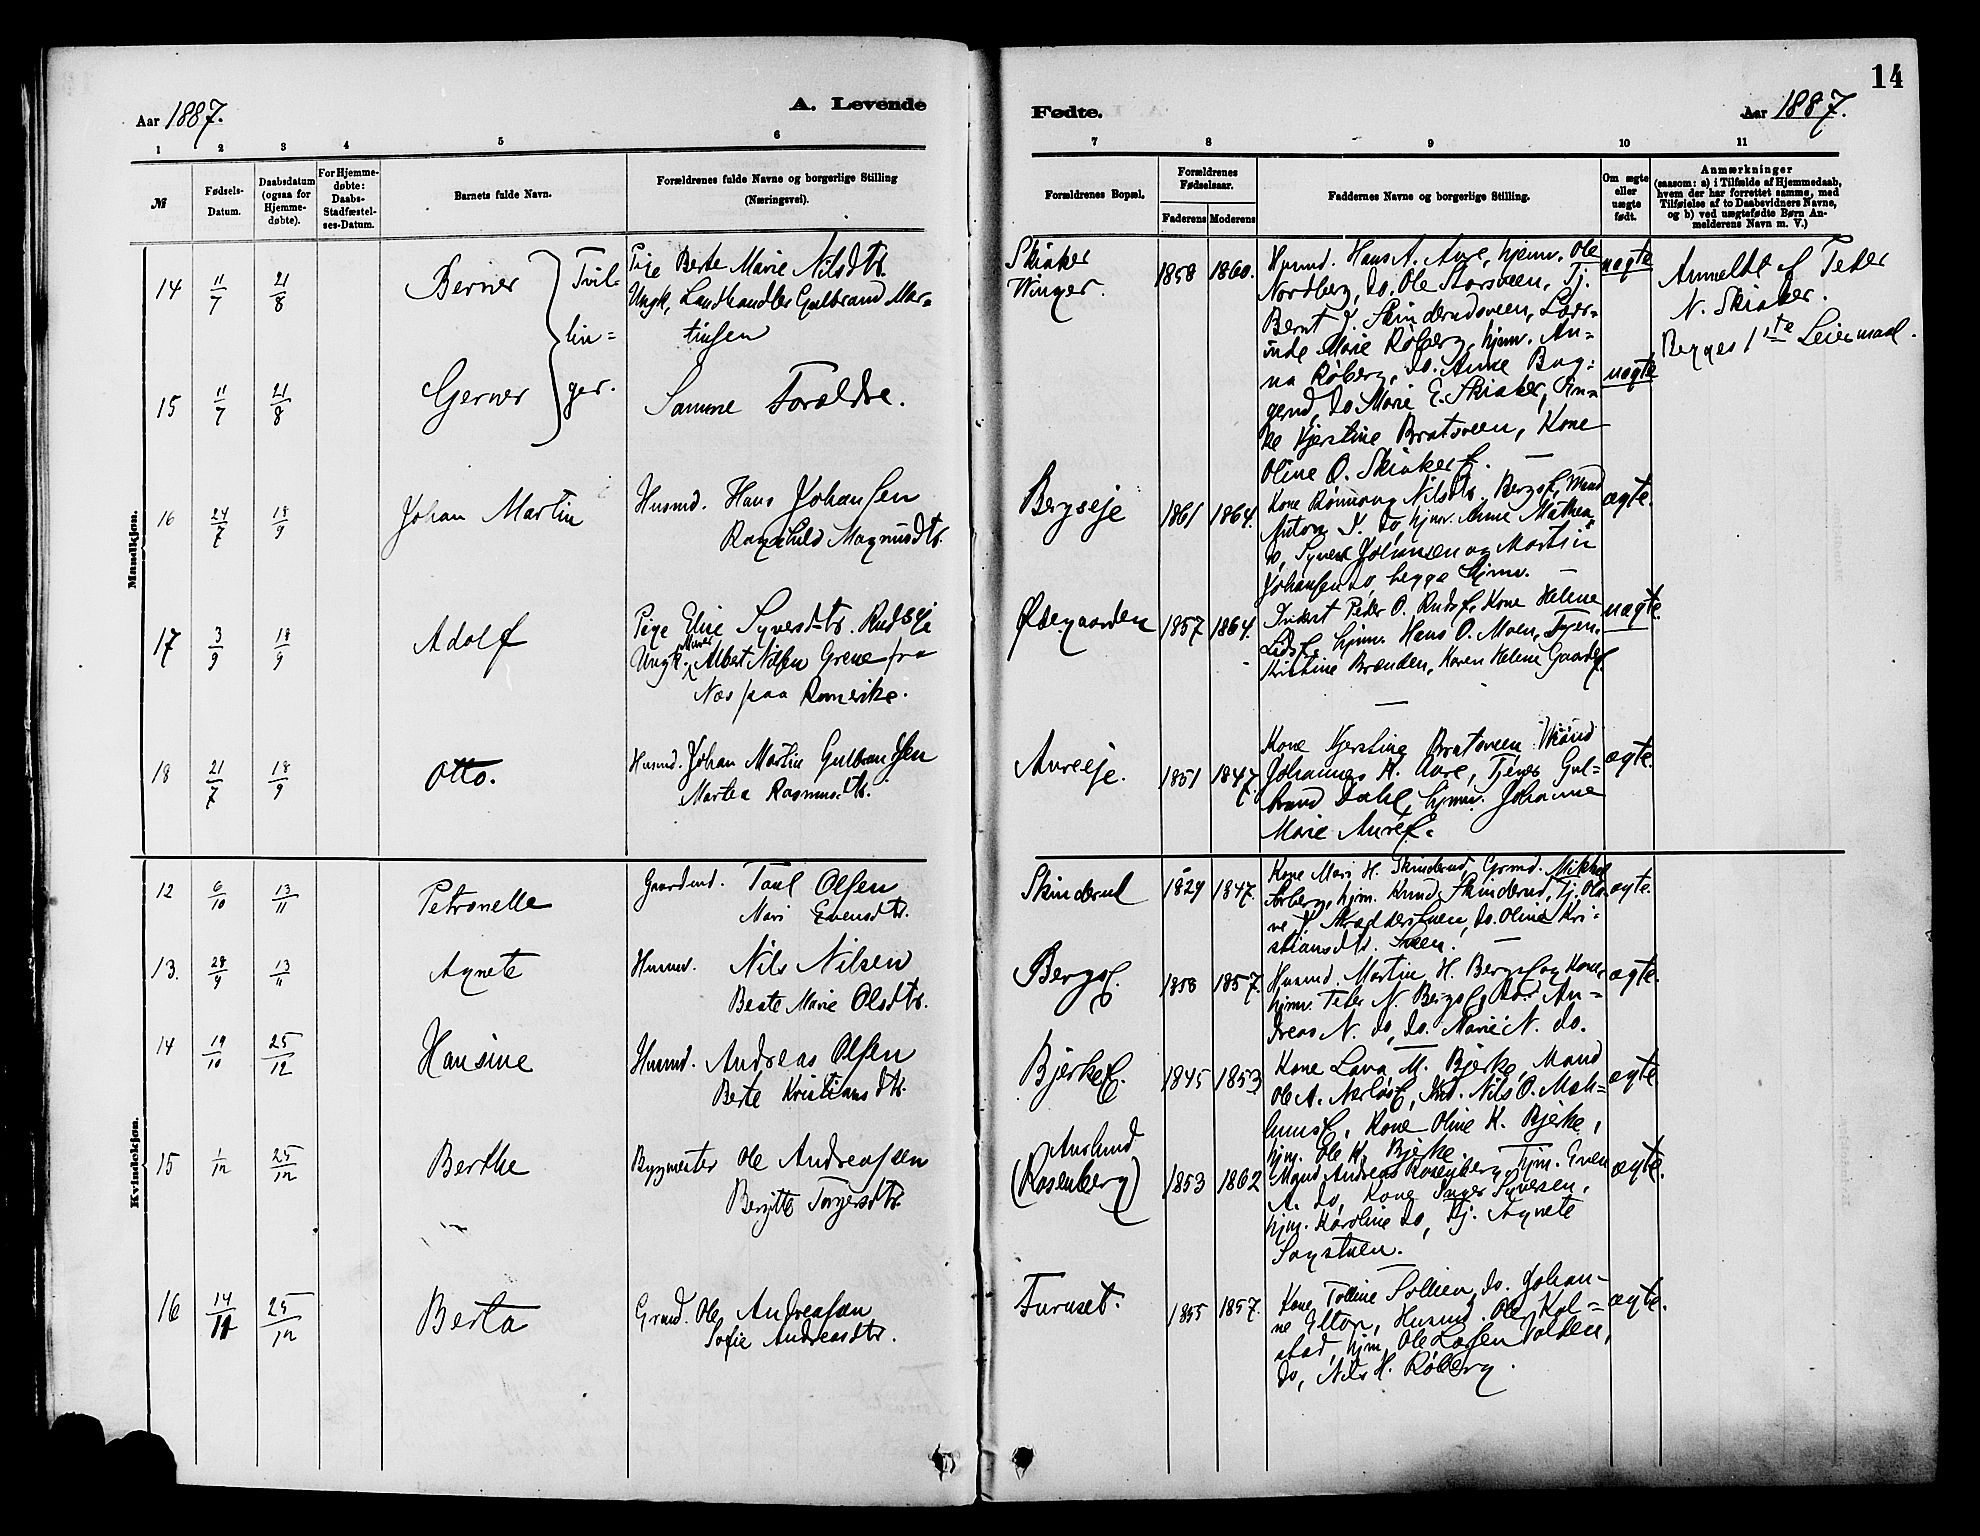 14
Aar 1887.
A. Levende
Fødte.
Aar 1887.
1 2 3 4 5 6
7 8 9 10 11
№
Fødsels-
Datum.
Daabsdatum
(ogsaa for
Hjemme-
døbte).
For Hjemme-
døbte:
Daabs-
Stadfæstel-
ses-Datum.
Barnets fulde Navn.
Forældrenes fulde Navne og borgerlige Stilling
(Næringsvei).
Forældrenes Bopæl.
Forældrenes
Fødselsaar.
Faderens Moderens
Faddernes Navne og borgerlige Stilling.
Om ægte
eller
uægte
født.
Anmærkninger
(saasom: a) i Tilfælde af Hjemmedaab,
hvem der har forrettet samme, med
Tilføielse af to Daabsvidners Navne,
og b) ved uægtefødte Børn An-
melderens Navn m. V.)
Mandkjøn.
14 11/7 21/8 Berner Tvil-
lin-
ger.
Pige Berte Marie Nilsdtr.
Ungk. Landhandler Gulbrand Mar-
tinsen
Skiaker
Winger.
1858 1860.
Husmd. Hans A. Aure, hjmv. Ole
Nordberg, do. Ole Storsveen, Tj.
Bernt J. Skinderudsveen, Lær-
inde Marie Røberg, hjmv. An-
na Røberg, do. Anne Bag-
gerud, do Marie E. Skiaker, En-
ke Kjerstine Bratsveen, Kone
Oline O. Skiakere.
uægte
Anmeldt af Peder
N. Skiaker.
Begges 1ste Leiermaal.
15 11/7 21/8 Gjerner
Samme Forældre.
uægte
16 24/7 18/9 Johan Martin
Husmd. Hans Johansen
Ragnhild Magnusdtr.
Bergseje
1861 1864.
Kone Rønnaug Nilsdtr. Bergse, Mand
Anton J. do, hjmv. Anne Mathea
do, Syver Johansen og Martin
Johansen do, begge hjmv.
ægte.
17 3/9 18/9 Adolf
Pige Elise Syversdtr. Rudseje
Ungk. Murer Albert Nilsen Grene fra
Næs paa Romerike.
Ødegaarden
1857 1864.
Inderst Peder O. Rudse, Kone Helene
Lidse, hjmv. Hans O. Moen, Tjen.
Kristine Brænden, Karen Helene Gaarde.
uægte.
18 21/7 18/9 Otto.
Husmd. Johan Martin Gulbrandsen
Martea Rasmusdtr.
Aureeje.
1851 1847.
Kone Kjerstine Bratsveen, Mand
Johannes K. Aure, Tjener Gul-
brand Dahl, hjmv. Johanne
Marie Auree.
ægte.
Kvindekjøn.
12 6/10 13/11 Petronelle
Gaardmd. Paul Olsen
Mari Evensdtr.
Skinderud
1829 1847.
Kone Mari H. Skinderud, Grmd. Mikkel
hjm. Knud Skinderud, Tj. Oli-
ne J. Skræddersveen, do. Oline Kri-
stiansdtr. Sveen.
ægte.
13. 28/9 13/11 Agnete
Husmd. Nils Nilsen
Berte Marie Olsdtr.
Bergse.
1858 1857.
Husmd. Martin H. Bergse og Kone,
hjmv. Peder N. Bergse, do. An-
dreas N. do, do. Marie N. do.
ægte.
14 19/10 25/12 Hansine
Husmd. Andreas Olsen
Berte Kristiansdtr.
Bjerkee.
1845 1853
Kone Lava M. Bjerke, Mand
Ole A. Nerløse, Ind. Nils O. Mæh-
lumse, Kone Oline K. Bjerke,
hjm. Ole K. Bjerke.
ægte
15 1/12 25/12 Berthe
Bygmester Ole Andreassen
Bergitte Torgersdtr.
Aurlund
(Rosenberg)
1853 1862
Mand Andreas Rosenberg, Tjm. Even
A. do, Kone Inger Syversen,
hjm. Karoline do, Tj. Agnete
Sagstuen.
ægte.
16 14/11 25/12 Berta
Grmd. Ole Andreassen
Sofie Andreasdtr.
Furuset.
1855 1857.
Kone Polline Sollien, do. Johan-
ne Elton, Husmd. Ole Kol-
stad, hjm. Ole Larsen Volden,
do, Nils H. Røberg.
ægte.